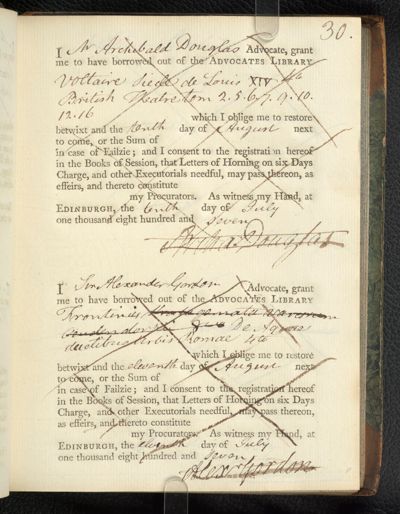 30.
I Mr Archibald Douglas Advocate, grant
me to have borrowed out of the ADVOCATES LIBRARY
Voltaire Siecle de Louis XIV 4to
British Theatre tom 2. 5. 6. 7. 9. 10.
12. 16 which I oblige me to restore
betwixt and the tenth day of August next
to come, or the Sum of
in case of Failzie; and I consent to the registration hereof
in the Books of Session, that Letters of Horning on six Days
Charge, and other Executorials needful, may pass thereon, as
effeirs, and thereto constitute
my Procurators. As witness my Hand, at
EDINBURGH, the tenth day of July
one thousand eight hundred and seven
Archd. Douglas
I Mr Alexander Gordon Advocate, grant
me to have borrowed out of the ADVOCATES LIBRARY
Frontinus
De Aquae
ductibus Urbis Romae 4to
which I oblige me to restore
betwixt and the eleventh day of August next
to come, or the Sum of
in case of Failzie; and I consent to the registration hereof
in the Books of Session, that Letters of Horning on six Days
Charge, and other Executorials needful, may pass thereon,
as effeirs, and thereto constitute
my Procurators. As witness my Hand, at
EDINBURGH, the eleventh day of July
one thousand eight hundred and seven
Alexr Gordon